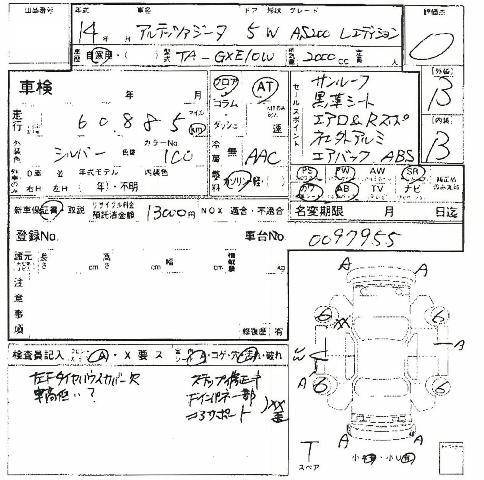 出品番号 年式 車名 ドア 形状 グレード 評価点
14年 アルテッツァジータ 5 W AS200 Lエディション 0
車歴 自家用・( ) 型式 TA-GXE10W 排気量 2000cc 定員 人
車検 年 月
フロア AT
コラム・
ダッシュ 速
セールスポイント
サンルーフ
黒革シート
エアロ&Rスポ
社外アルミ
エアバック ABS
外装 B
内装 B
走行 60885 マイル km
外装色 シルバー 色替 カラーNo. 1C0
冷房 無 AAC
燃料 ガソリン・軽・
PS PW AW SR
カワ AB TV ナビ
0車 並 年式モデル 内装色
右H 左H ( 年)・不明
新車保証書・取説 リサイクル料金 預託済金額 13000円 NOX 適合・不適合
名変期限 月 日迄
登録No. 車台No. 0097955
諸元 長さ cm 高さ cm 幅 cm 積載量 kg
注意事項
修復歴 有
検査員記入 A・X 要 ス A・コゲ・穴・汚れ・破れ
左Fタイヤハウスカバー欠
車高低い?
ステップ修正キ
Fインパネ一部
コアサポート XX 歪
A A A
6 6
XX
A
6 6
A A
T スペア
小キズ・小U凹